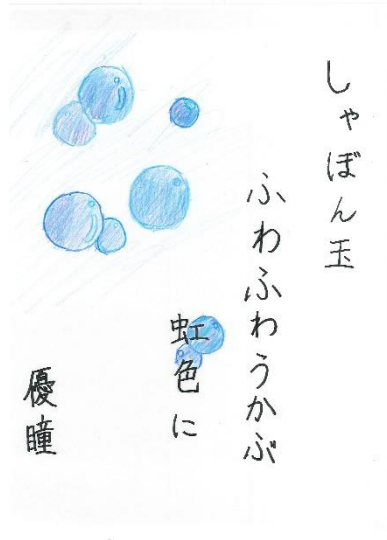 しゃぼん玉
ふわふわうかぶ
虹色に
優瞳